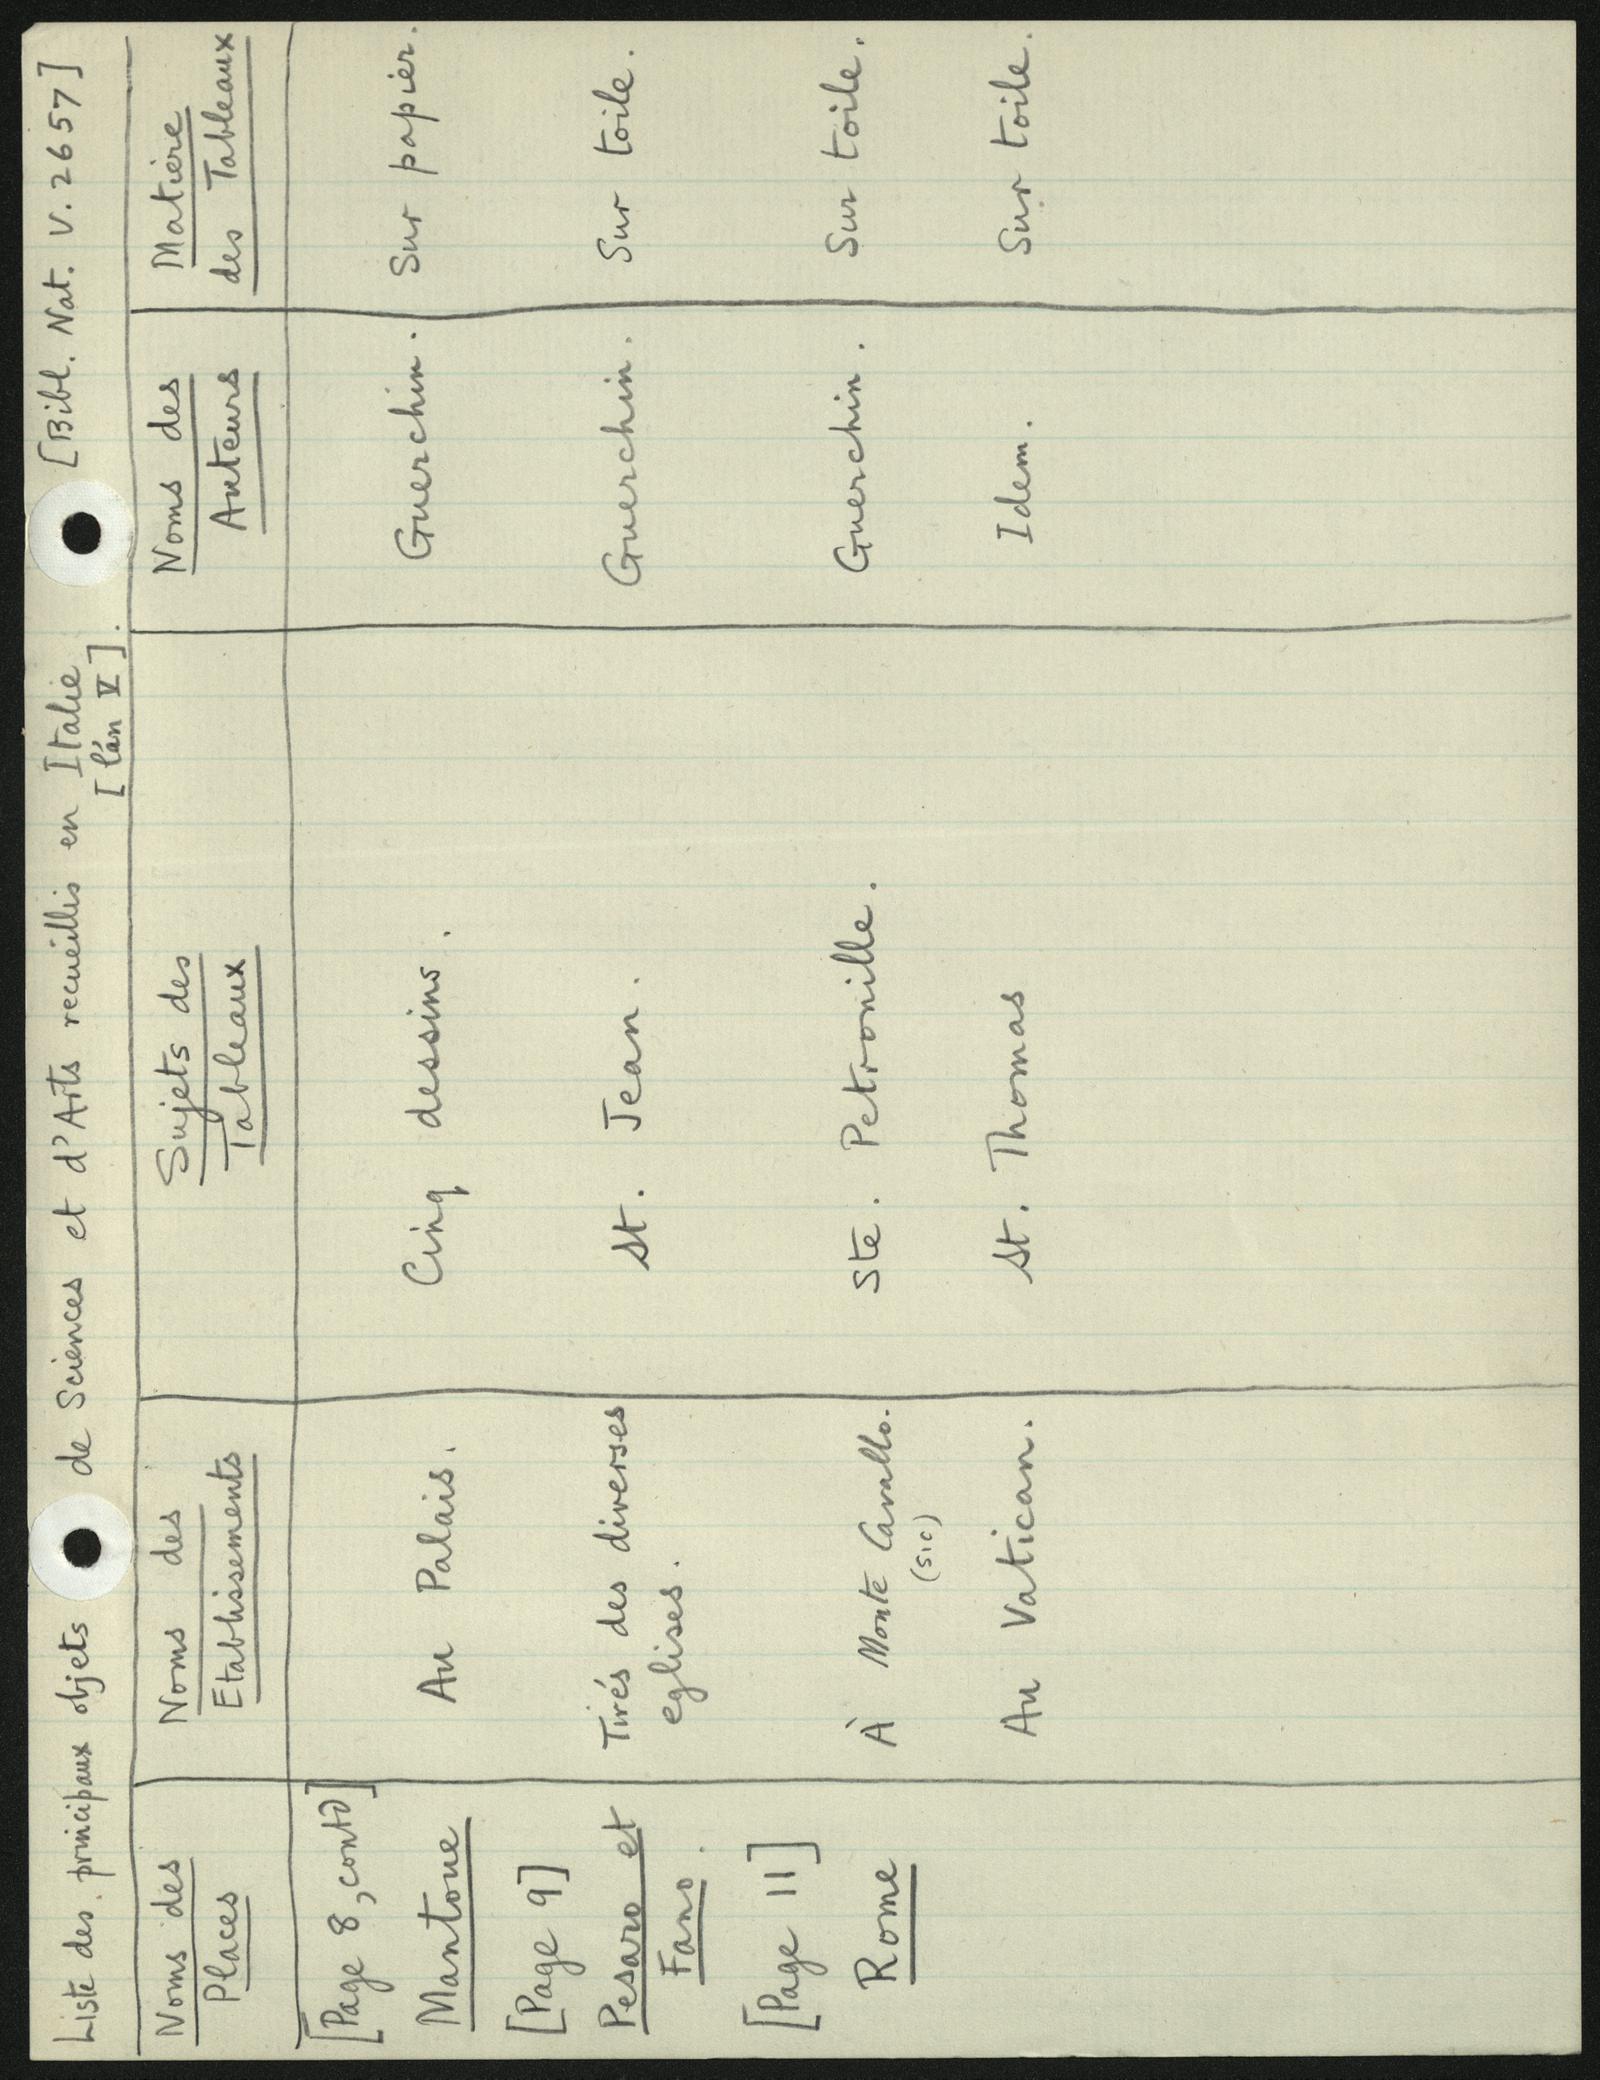 Liste des principaux objets de Sciences et d'Arts recueillis en Italie [Bibl. Nat. V. 2657]
[l'an V].
Noms des Places
Noms des Etablissements
Sujets des Tableaux
Noms des Auteurs
Matière des Tableaux
[Page 8, contd]
Mantoue Au Palais. Cinq dessins. Guerchin. Sur papier.
[Page 9]
Pesaro et Tirés des diverses St. Jean. Guerchin. Sur toile.
Fano. eglises.
[Page 11]
Rome À Monte Cavallo. Ste. Petronille. Guerchin. Sur toile.
(sic)
Au Vatican. St. Thomas Idem. Sur toile.